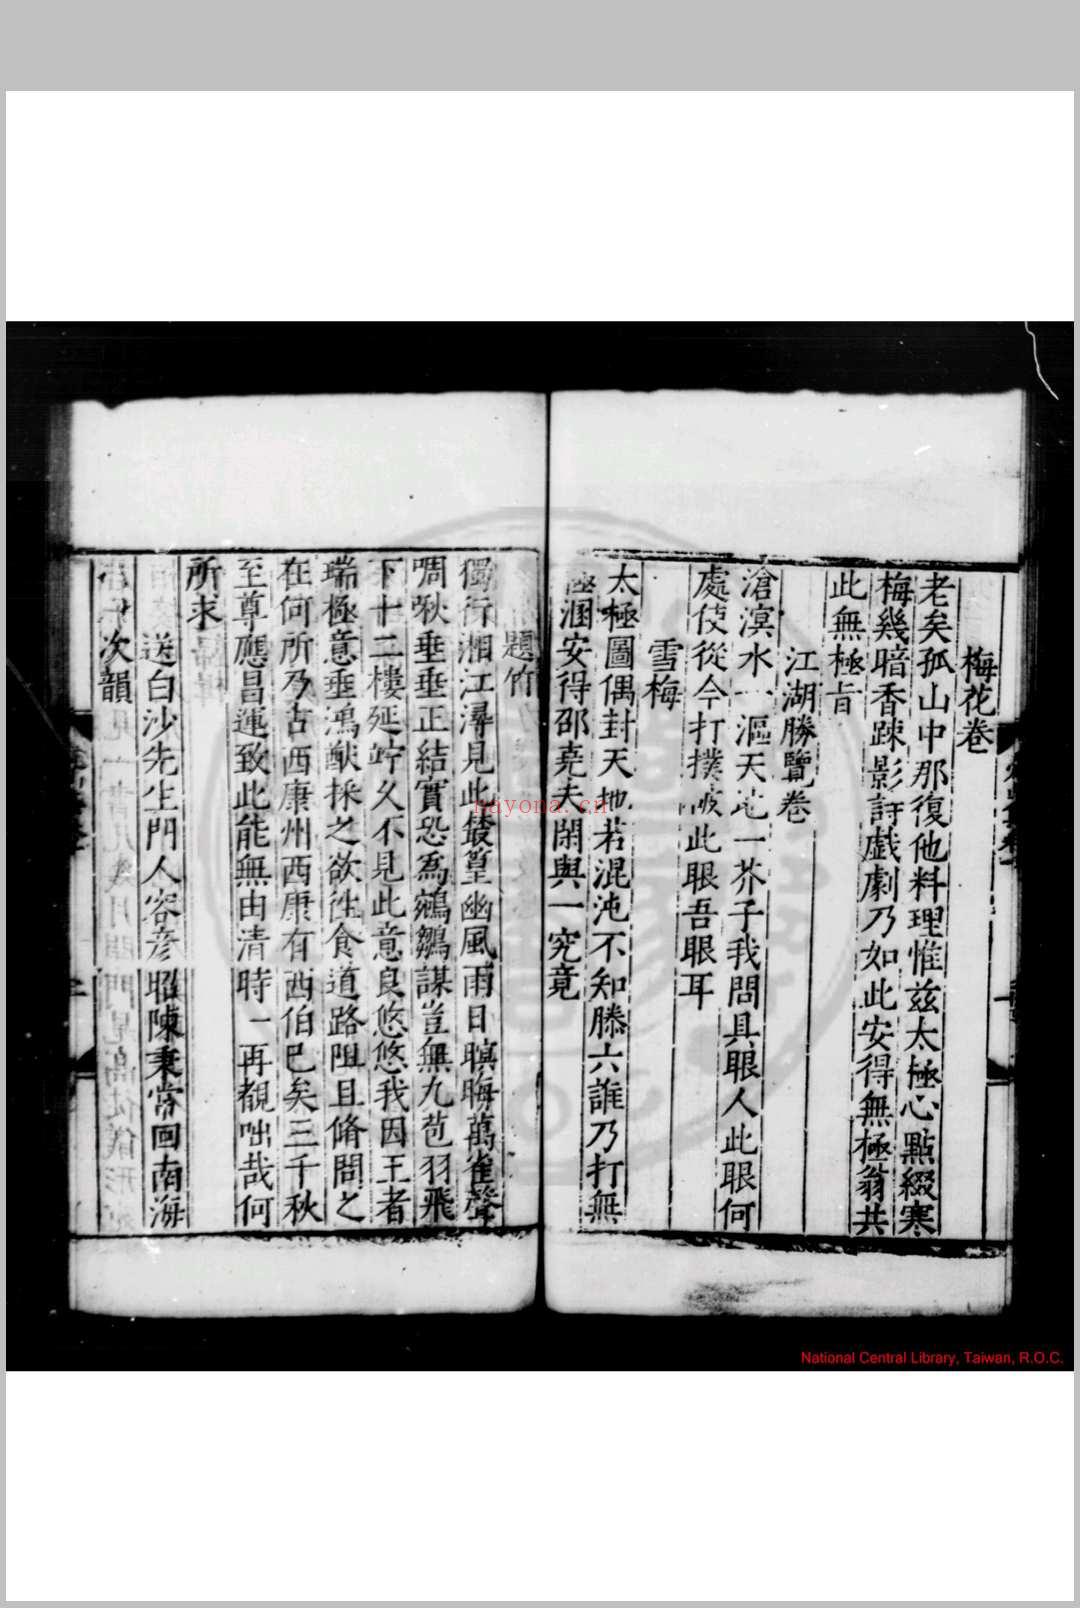 梅花卷
老矣孤山中那復他料理惟兹太極心點綴寒
梅幾暗香踈影詩戲劇乃如此安得無極翁共
此無極旨
江湖勝覽卷
滄溟水一漚天地一芥子我問具眼人此眼何
處使從今打撲破此眼吾眼耳
雪梅
太極圖偶封天地若混沌不知滕六誰乃打無
極溷安得邵堯夫閑與一究竟
題竹
獨行湘江潯見此叢篁幽風雨日暝晦萬雀聲
啁啾垂垂正結實恐為鵷鶵謀豈無九苞羽飛
下十二樓延竚久不見此意良悠悠我因王者
瑞極意垂鴻猷採之欲往食道路阻且脩問之
在何所乃古西康州西康有西伯已矣三千秋
至尊應昌運致此能無由清時一再覩咄哉何
所求
送白沙先生門人容彥昭陳秉常囬南海
次韻
nayona.cn
National Central Library, Taiwan, R.O.C.